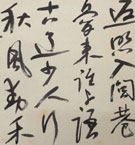 返照入閭巷
憂来誰共語
古道少人行
秋風動禾